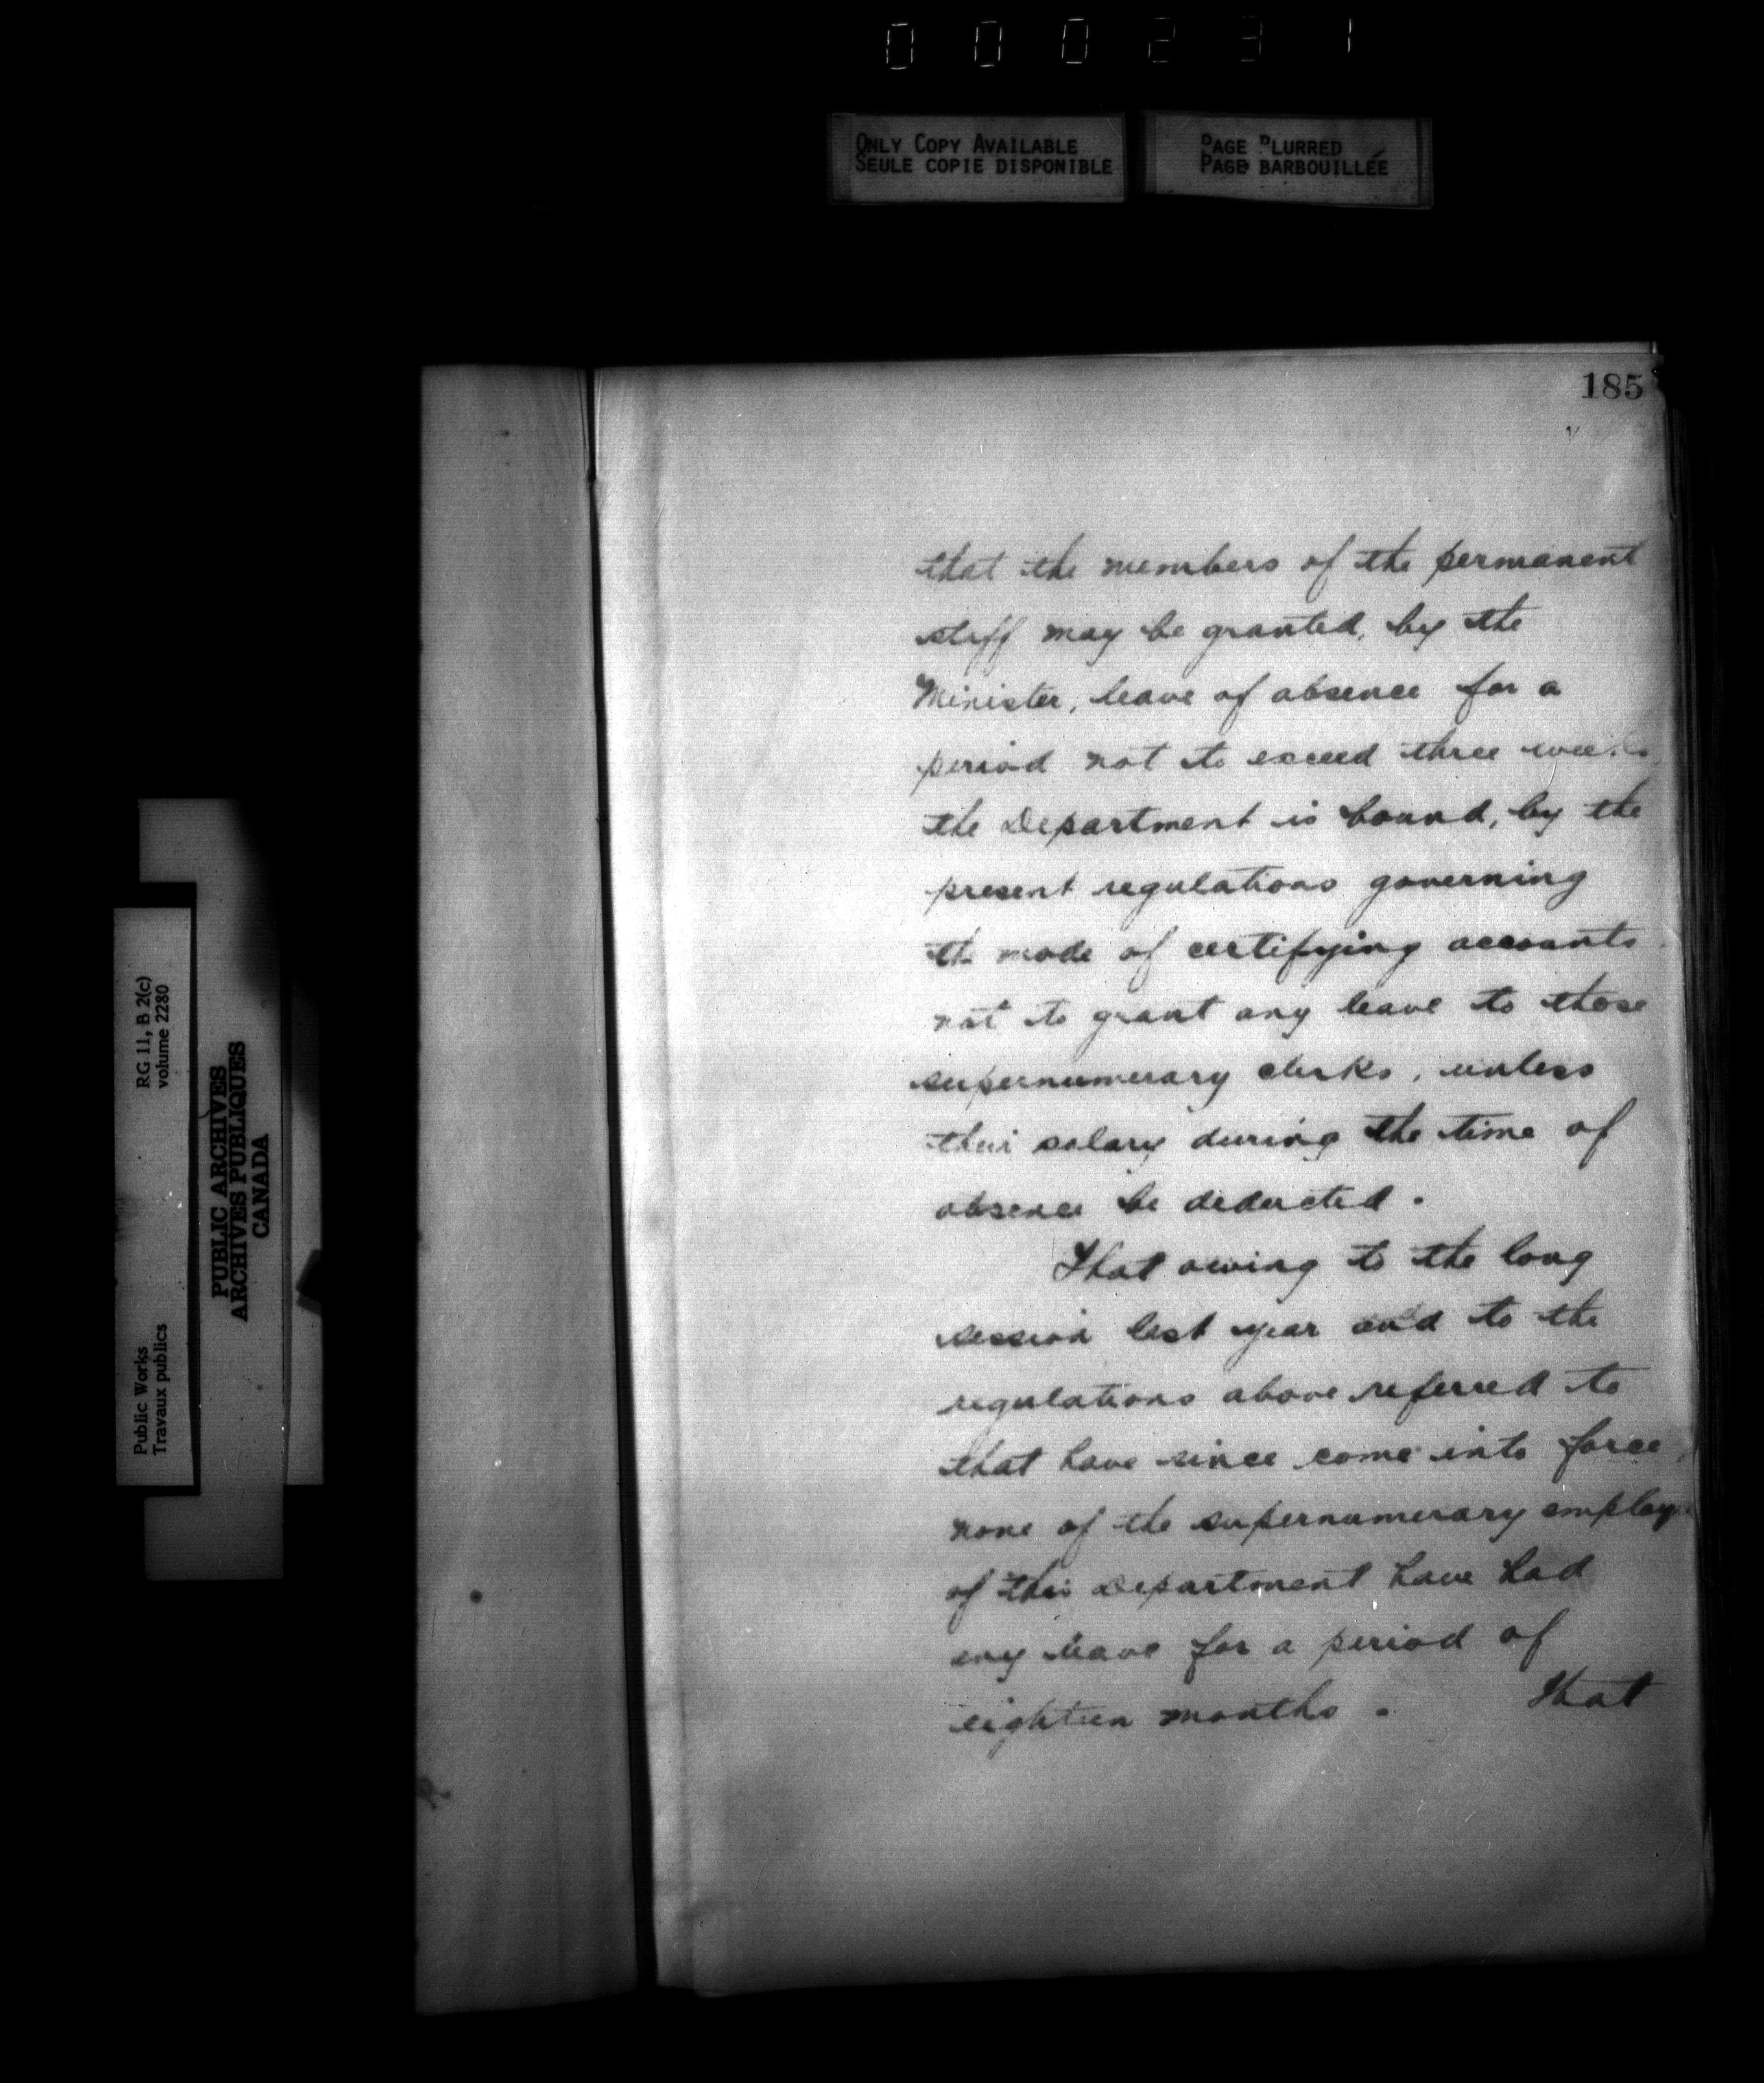 000231
ONLY COPY AVAILABLE
SEULE COPIE DISPONIBLE
PAGE BLURRED
PAGE BARBOUILLÉE
185
that the members of the permanent
staff may be granted, by the
Minister, leave of absence for a
period not to exceed three weeks
the Department is bound, by the
present regulations governing
the mode of certifying accounts
not to grant any leave to those
supernumerary clerks, unless
their salary during the time of
absence be deducted.
That owing to the long
session last year and to the
regulations above referred to
that have since come into force,
none of the supernumerary employ
of this Department have had
any leave for a period of
eighteen months. That
RG 11, B 2(c)
volume 2280
Public Works
Travaux publics
PUBLIC ARCHIVES
ARCHIVES PUBLIQUES
CANADA